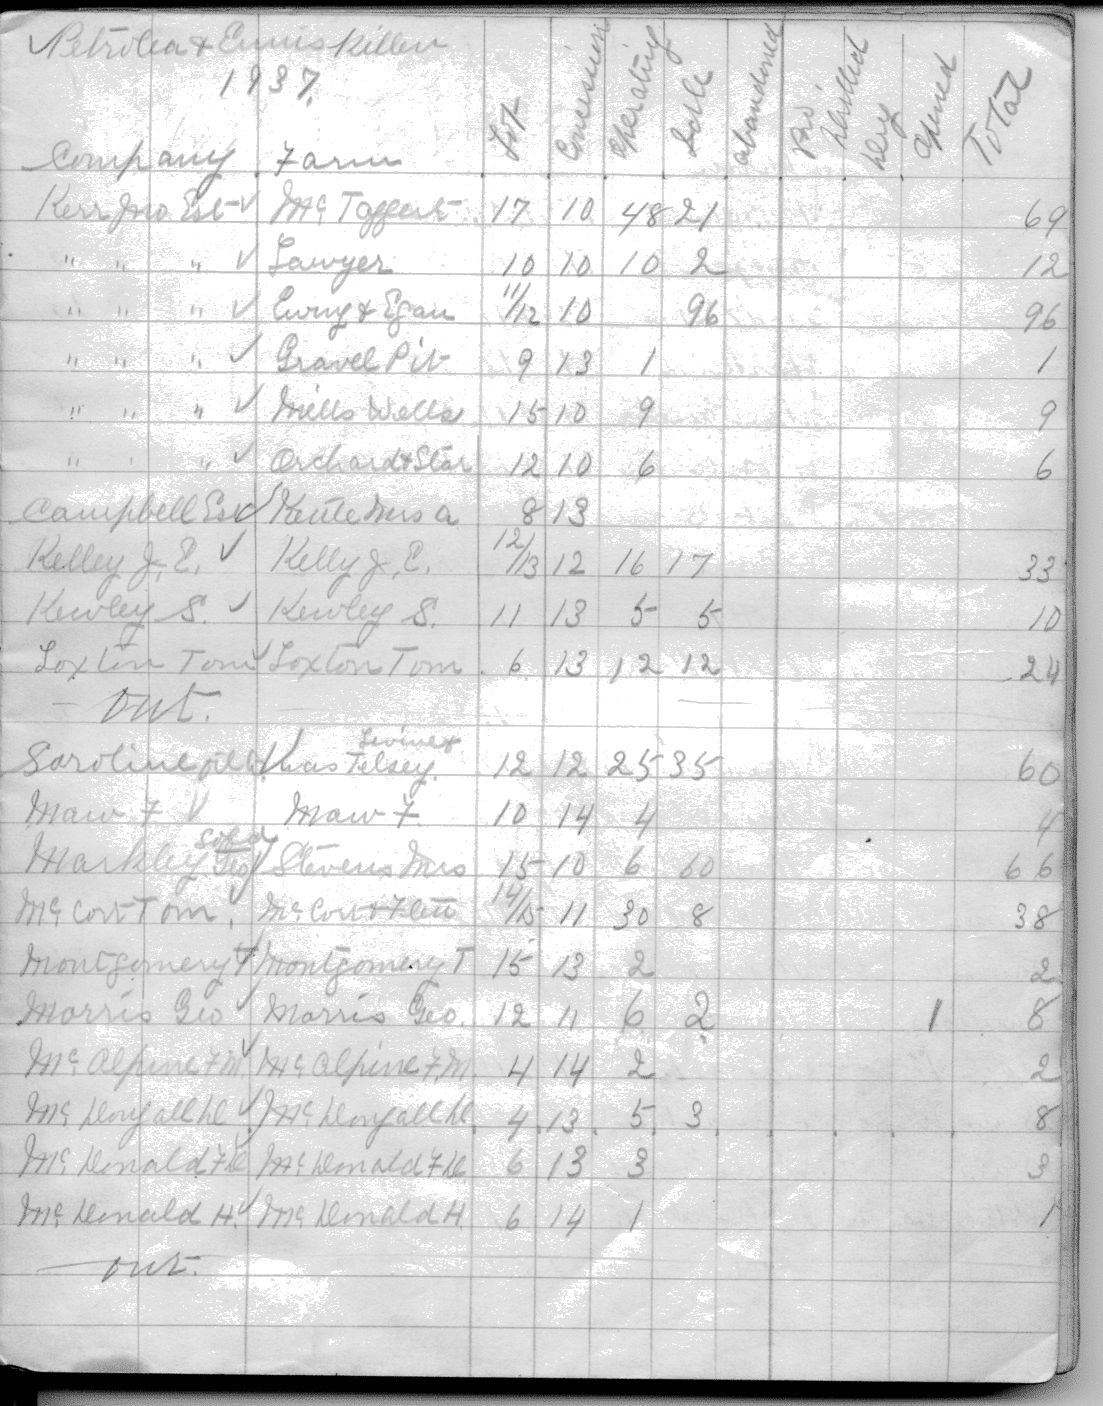 ✓ Petrolea & Enniskillen
1937.
Company Farm Lot Concession Operating Idle Abandoned Drilled Dry Opened Total
Kerr Jno Est ✓ Mc Taggart 17 10 48 21 69
" " " ✓ Sawyer 10 10 10 2 12
" " " ✓ Ewing & Egan 11/12 10 96 96
" " " ✓ Gravel Pit 9 13 1 1
" " " ✓ Mills Wells 15 10 9 9
" " " ✓ Orchard & Star 12 10 6 6
Campbell Est ✓ Mrs a 8 13
Kelley J. E. ✓ Kelly J. E. 12/13 12 16 17 33
Kewley S. ✓ Kewley S. 11 13 5 5 10
Loxton Tom ✓ Loxton Tom 6 13 12 12 24
— out.
Saroline oil ✓ 12 12 25 35 60
Maw F ✓ Maw F. 10 14 4 4
Markley Geo ✓ Sold Stevens Mrs 15 10 6 60 66
Mc Cort Tom ✓ Mc Cort & 14/15 11 30 8 38
Montgomery T ✓ Montgomery T 15 13 2 2
Morris Geo ✓ Morris Geo. 12 11 6 2 1 8
Mc Alpine F.M. ✓ Mc Alpine F.M 4 14 2 2
Mc Dougall D ✓ Mc Dougall D 4 13 5 3 8
Mc Donald F.D. ✓ Mc Donald F.D. 6 13 3 3
Mc Donald H. ✓ Mc Donald H. 6 14 1 1
— out.